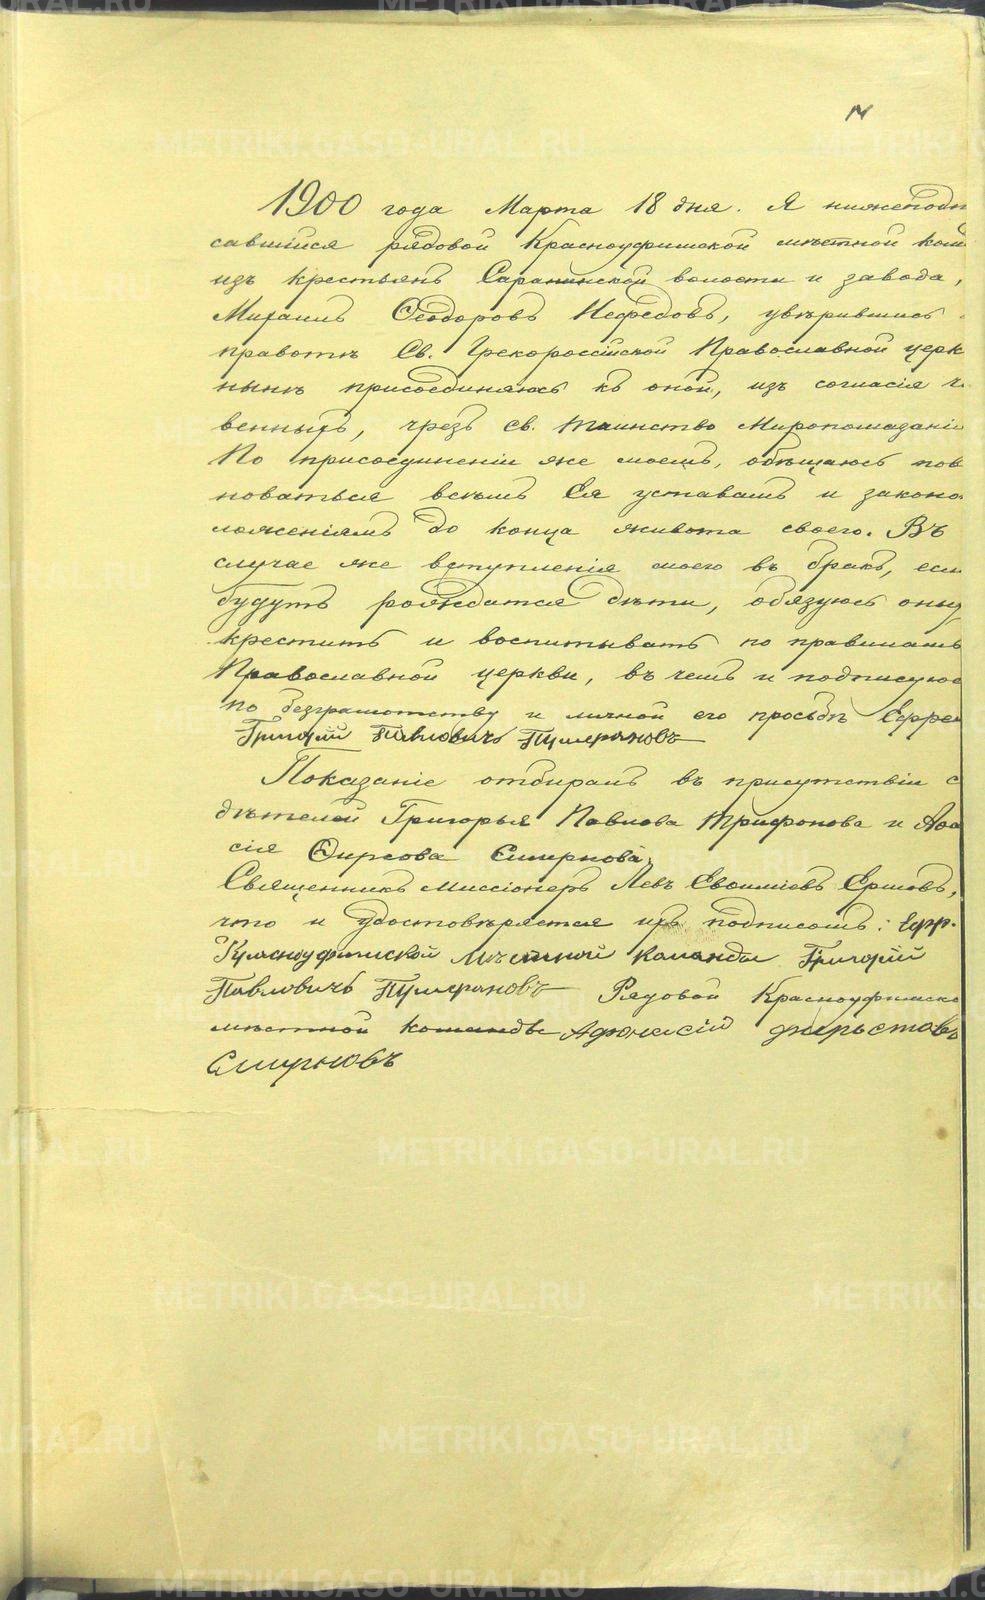 1900 года Марта 18 дня. Я нижеподп
савшийся рядовой Красноуфимской мѣстной ком
изъ крестьянъ Саранинской волости и завода,
Михаилъ Ѳеодоровъ Нефедовъ, увѣрившись
правотѣ Св. Грекороссійской Православной церк
нынѣ присоединяюсь къ оной, изъ согласія
венныхъ, чрезъ св. таинство Миропомазанія
По присоединеніи же моемъ, обѣщаюсь пов
новаться всѣмъ Ея уставамъ и законо
ложеніямъ до конца живота своего. Въ
случае же вступленія моего въ бракъ, если
будутъ рождатся дѣти, обязуюсь оных
крестить и воспитывать по правиламъ
Православной церкви, въ чемъ и подписуюс
по безграмотству и личной его просьбѣ Ефрей
Григорій Павловичъ Трифановъ
Показаніе отбиралъ въ присутствіи с
дѣтелей Григорья Павлова Трифонова и Афа
сія Ѳирсова Смирнова,
Священникъ Миссіонеръ Левъ Евѳиміевъ Ершовъ,
что и удостовѣряется ихъ подписомъ: Ефр.
Красноуфимской Мѣстной Команды Григорій
Павловичъ Трифановъ Рядовой Красноуфимско
мѣстной команды Афонасій фирстовъ
Смирновъ
METRIKI.GASO-URAL.RU